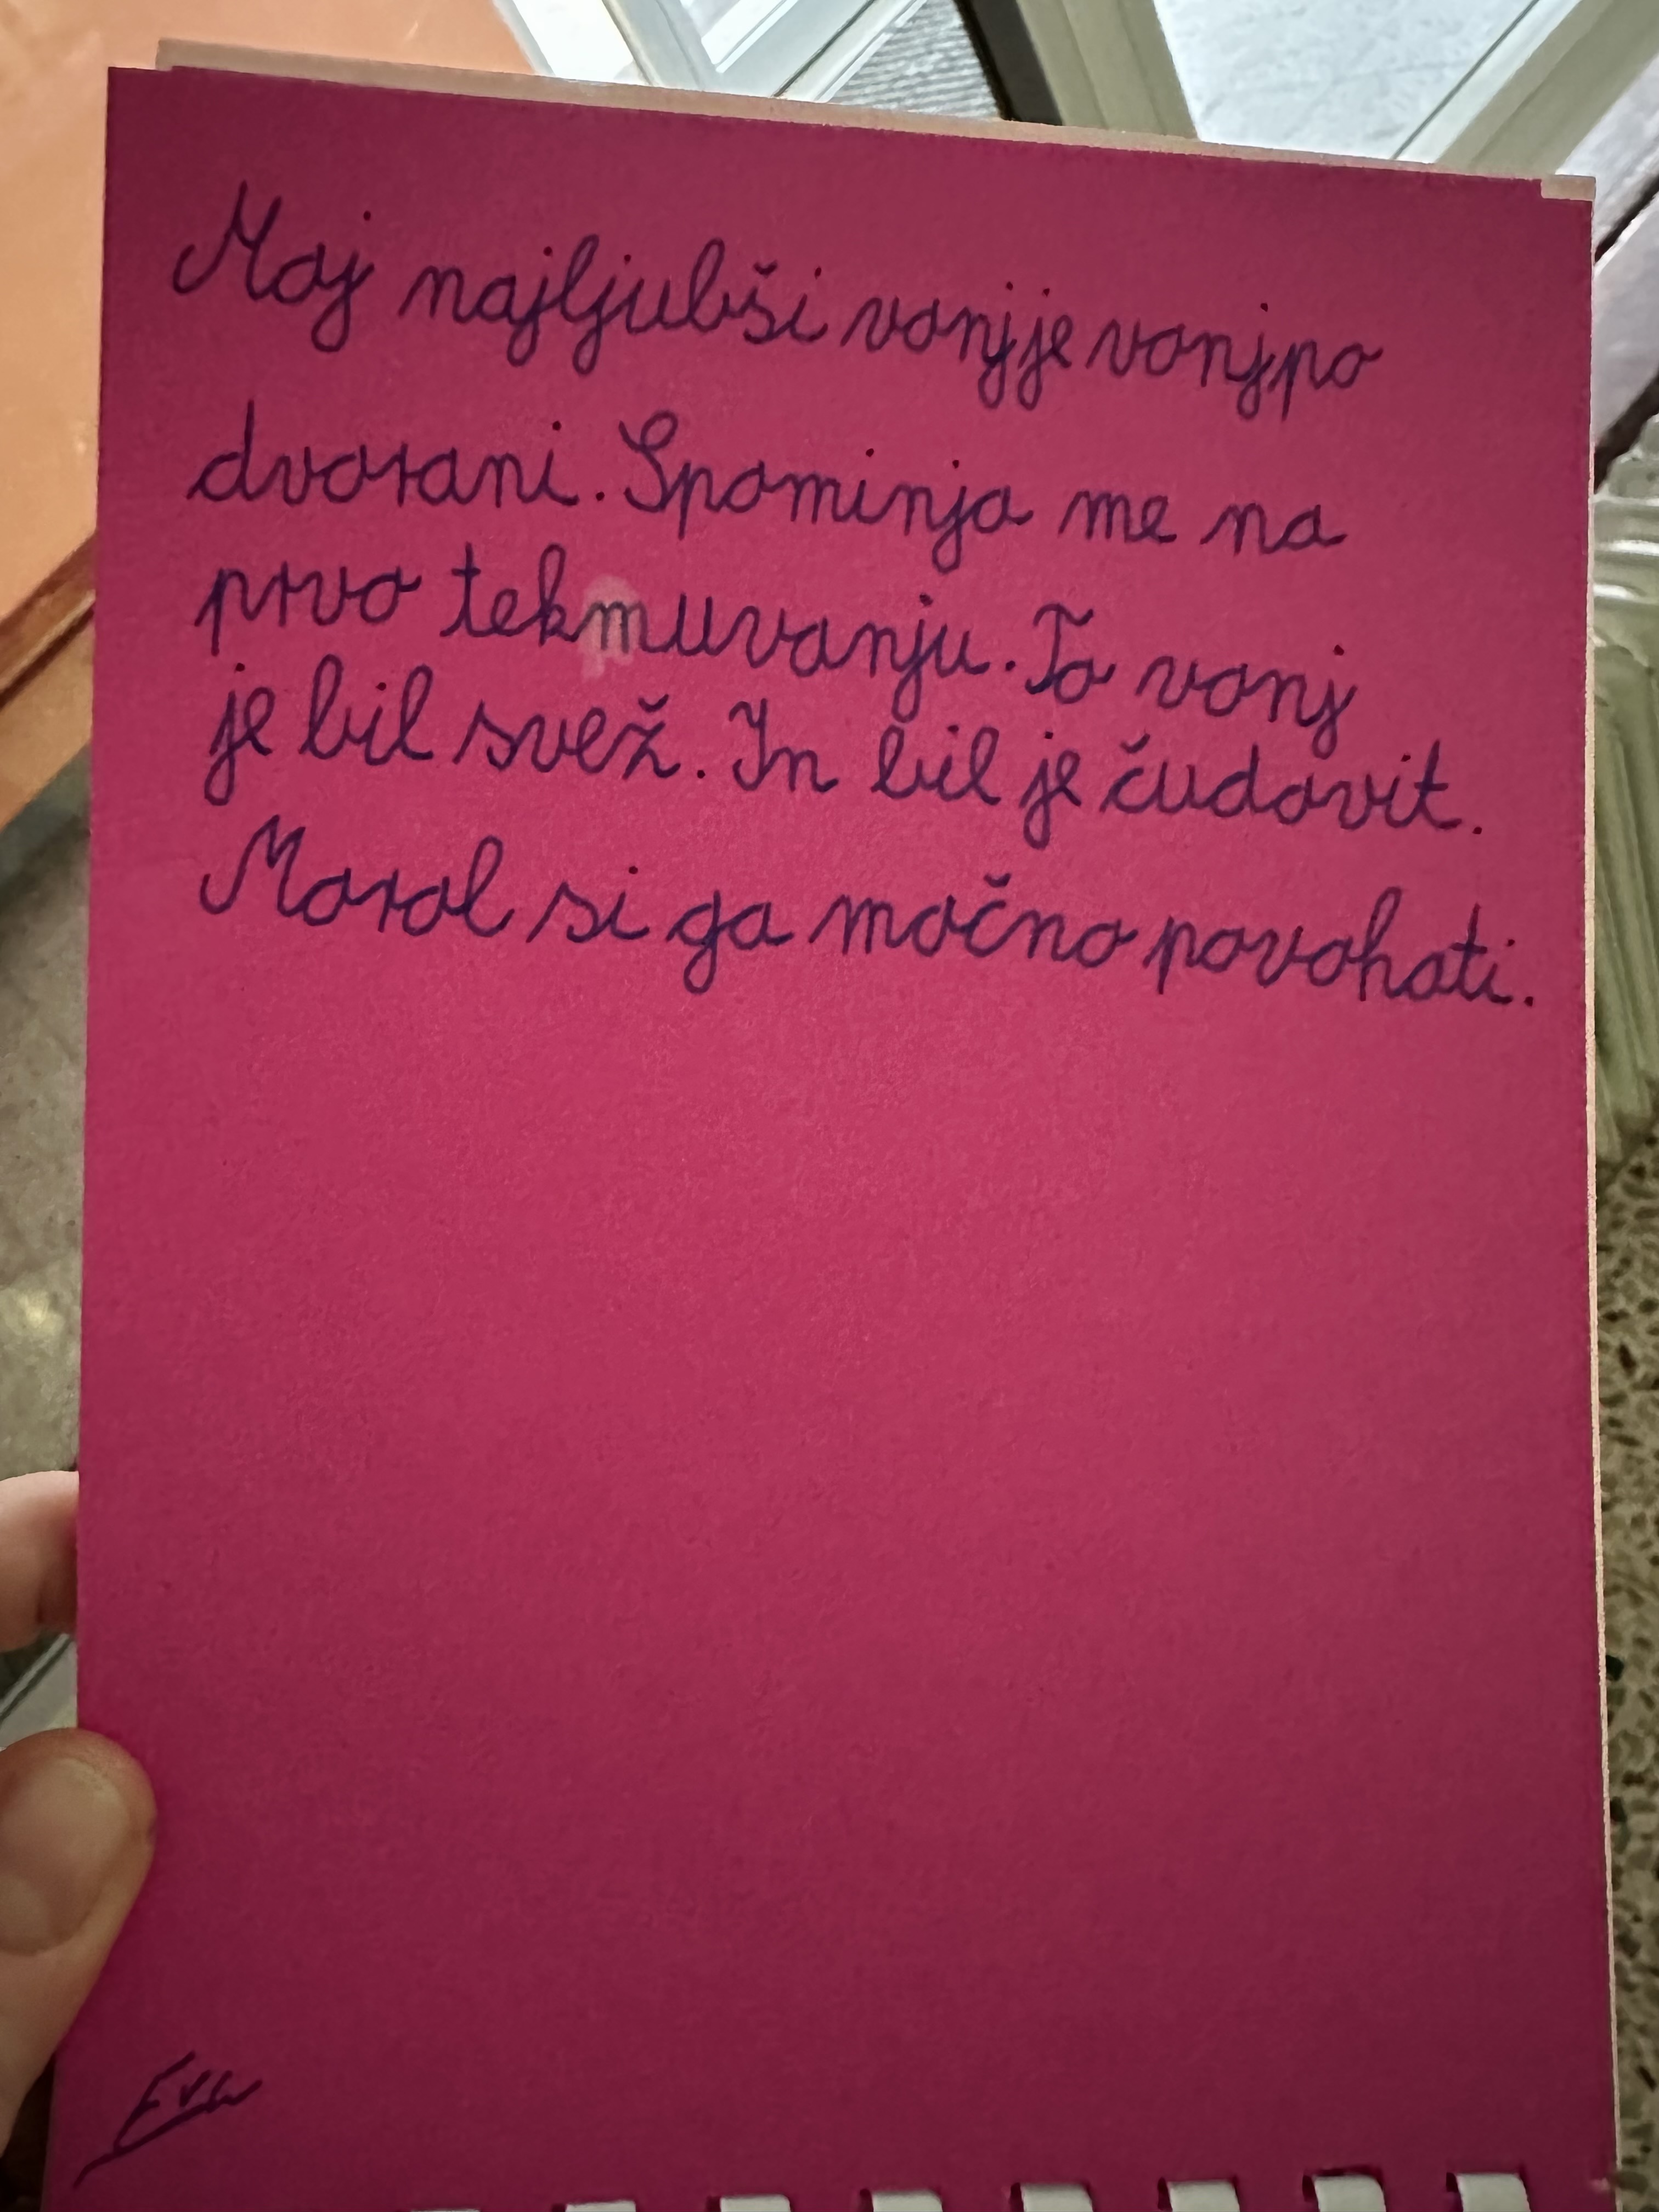 Moj najljubši vonj je vonj po
dvorani. Spominja me na
prvo tekmuvanju. Ta vonj
je bil svež. In bil je čudovit.
Moral si ga močno povohati.
Eva